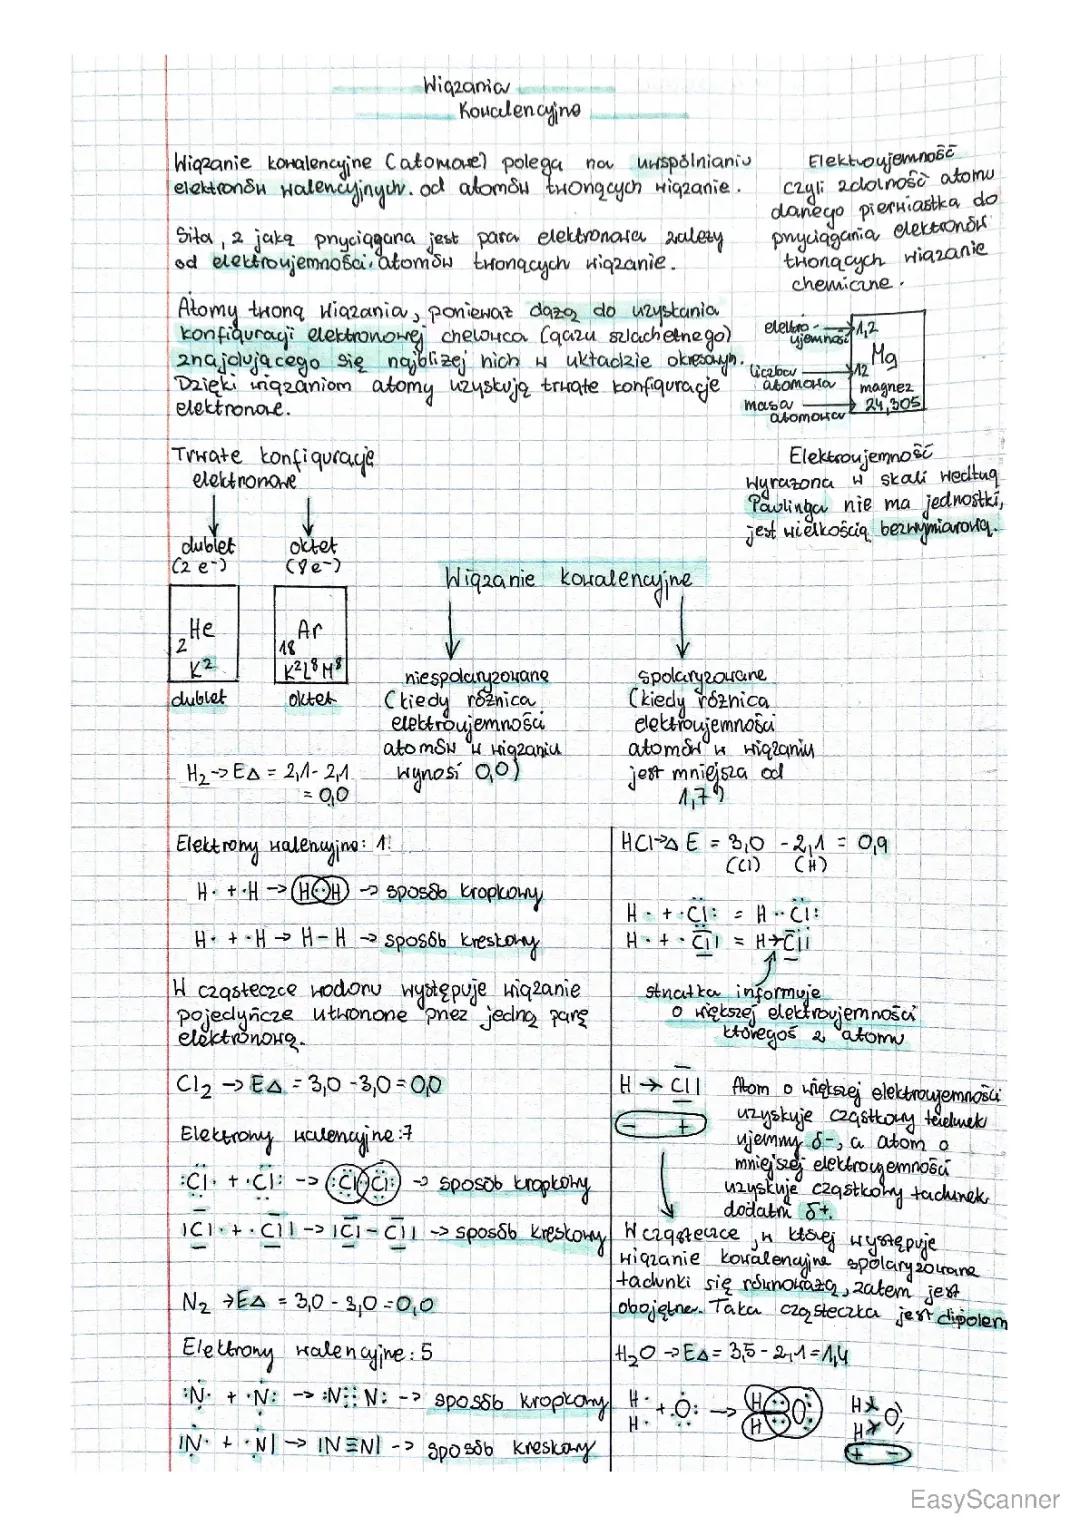 Wiązania
Kowalencyjne
Wiązanie kowalencyjne (atomowe) polega na uwspólnianiu
elektronów walencyjnych od atomów tworzących wiązanie.
Siła, z jaką przyciągana jest para elektronowa zależy
od elektroujemności atomów tworzących wiązanie.
Atomy tworzą wiązania, ponieważ dążą do uzyskania
konfiguracji elektronowej helowca (gazu szlachetnego)
znajdującego się najbliżej nich w układzie okresowym.
Dzięki wiązaniom atomy uzyskują trwałe konfiguracje
elektronowe.
Elektroujemność
czyli zdolność atomu
danego pierwiastka do
przyciągania elektronów
tworzących wiązanie
chemiczne.
elektro-
ujemność
1,2
Mg
liczba
atomowa
12
magnez
masa
atomowa
24,305
Elektroujemność
wyrażona w skali według
Paulinga nie ma jednostki,
jest wielkością bezwymiarową.
Trwałe konfiguracje
elektronowe
dublet oktet
(2 e-) (8 e-)
2 He 18 Ar
K² K²L⁸M⁸
dublet oktet
Wiązanie kowalencyjne
niespolaryzowane
(kiedy różnica
elektroujemności
atomów w wiązaniu
wynosi 0,0)
spolaryzowane
(kiedy różnica
elektroujemności
atomów w wiązaniu
jest mniejsza od
1,7)
H₂ -> E∆ = 2,1 - 2,1
= 0,0
Elektrony walencyjne: 1
H· + ·H -> H:H -> sposób kropkowy
H· + ·H -> H-H -> sposób kreskowy
W cząsteczce wodoru występuje wiązanie
pojedyńcze utworzone przez jedną parę
elektronową.
Cl₂ -> E∆ = 3,0 - 3,0 = 0,0
Elektrony walencyjne: 7
:Cl· + ·Cl: -> :Cl:Cl: -> sposób kropkowy
|Cl· + ·Cl| -> |Cl-Cl| -> sposób kreskowy
N₂ -> E∆ = 3,0 - 3,0 = 0,0
Elektrony walencyjne: 5
:N· + ·N: -> :N⫶⫶N: -> sposób kropkowy
|N· + ·N| -> |N≡N| -> sposób kreskowy
HCl -> ∆E = 3,0 - 2,1 = 0,9
(Cl) (H)
H· + ·Cl: = H··Cl:
H· + ·Cl| = H->Cl|
strzałka informuje
o większej elektroujemności
któregoś z atomu
H -> Cl|
- +
Atom o większej elektroujemności
uzyskuje cząstkowy ładunek
ujemny δ-, a atom o
mniejszej elektroujemności
uzyskuje cząstkowy ładunek
dodatni δ+.
W cząsteczce, w której występuje
wiązanie kowalencyjne spolaryzowane
ładunki się równoważą, zatem jest
obojętne. Taka cząsteczka jest dipolem
H₂O -> E∆ = 3,5 - 2,1 = 1,4
H·
H· + ·O: -> H H O: H H O
+ -
EasyScanner